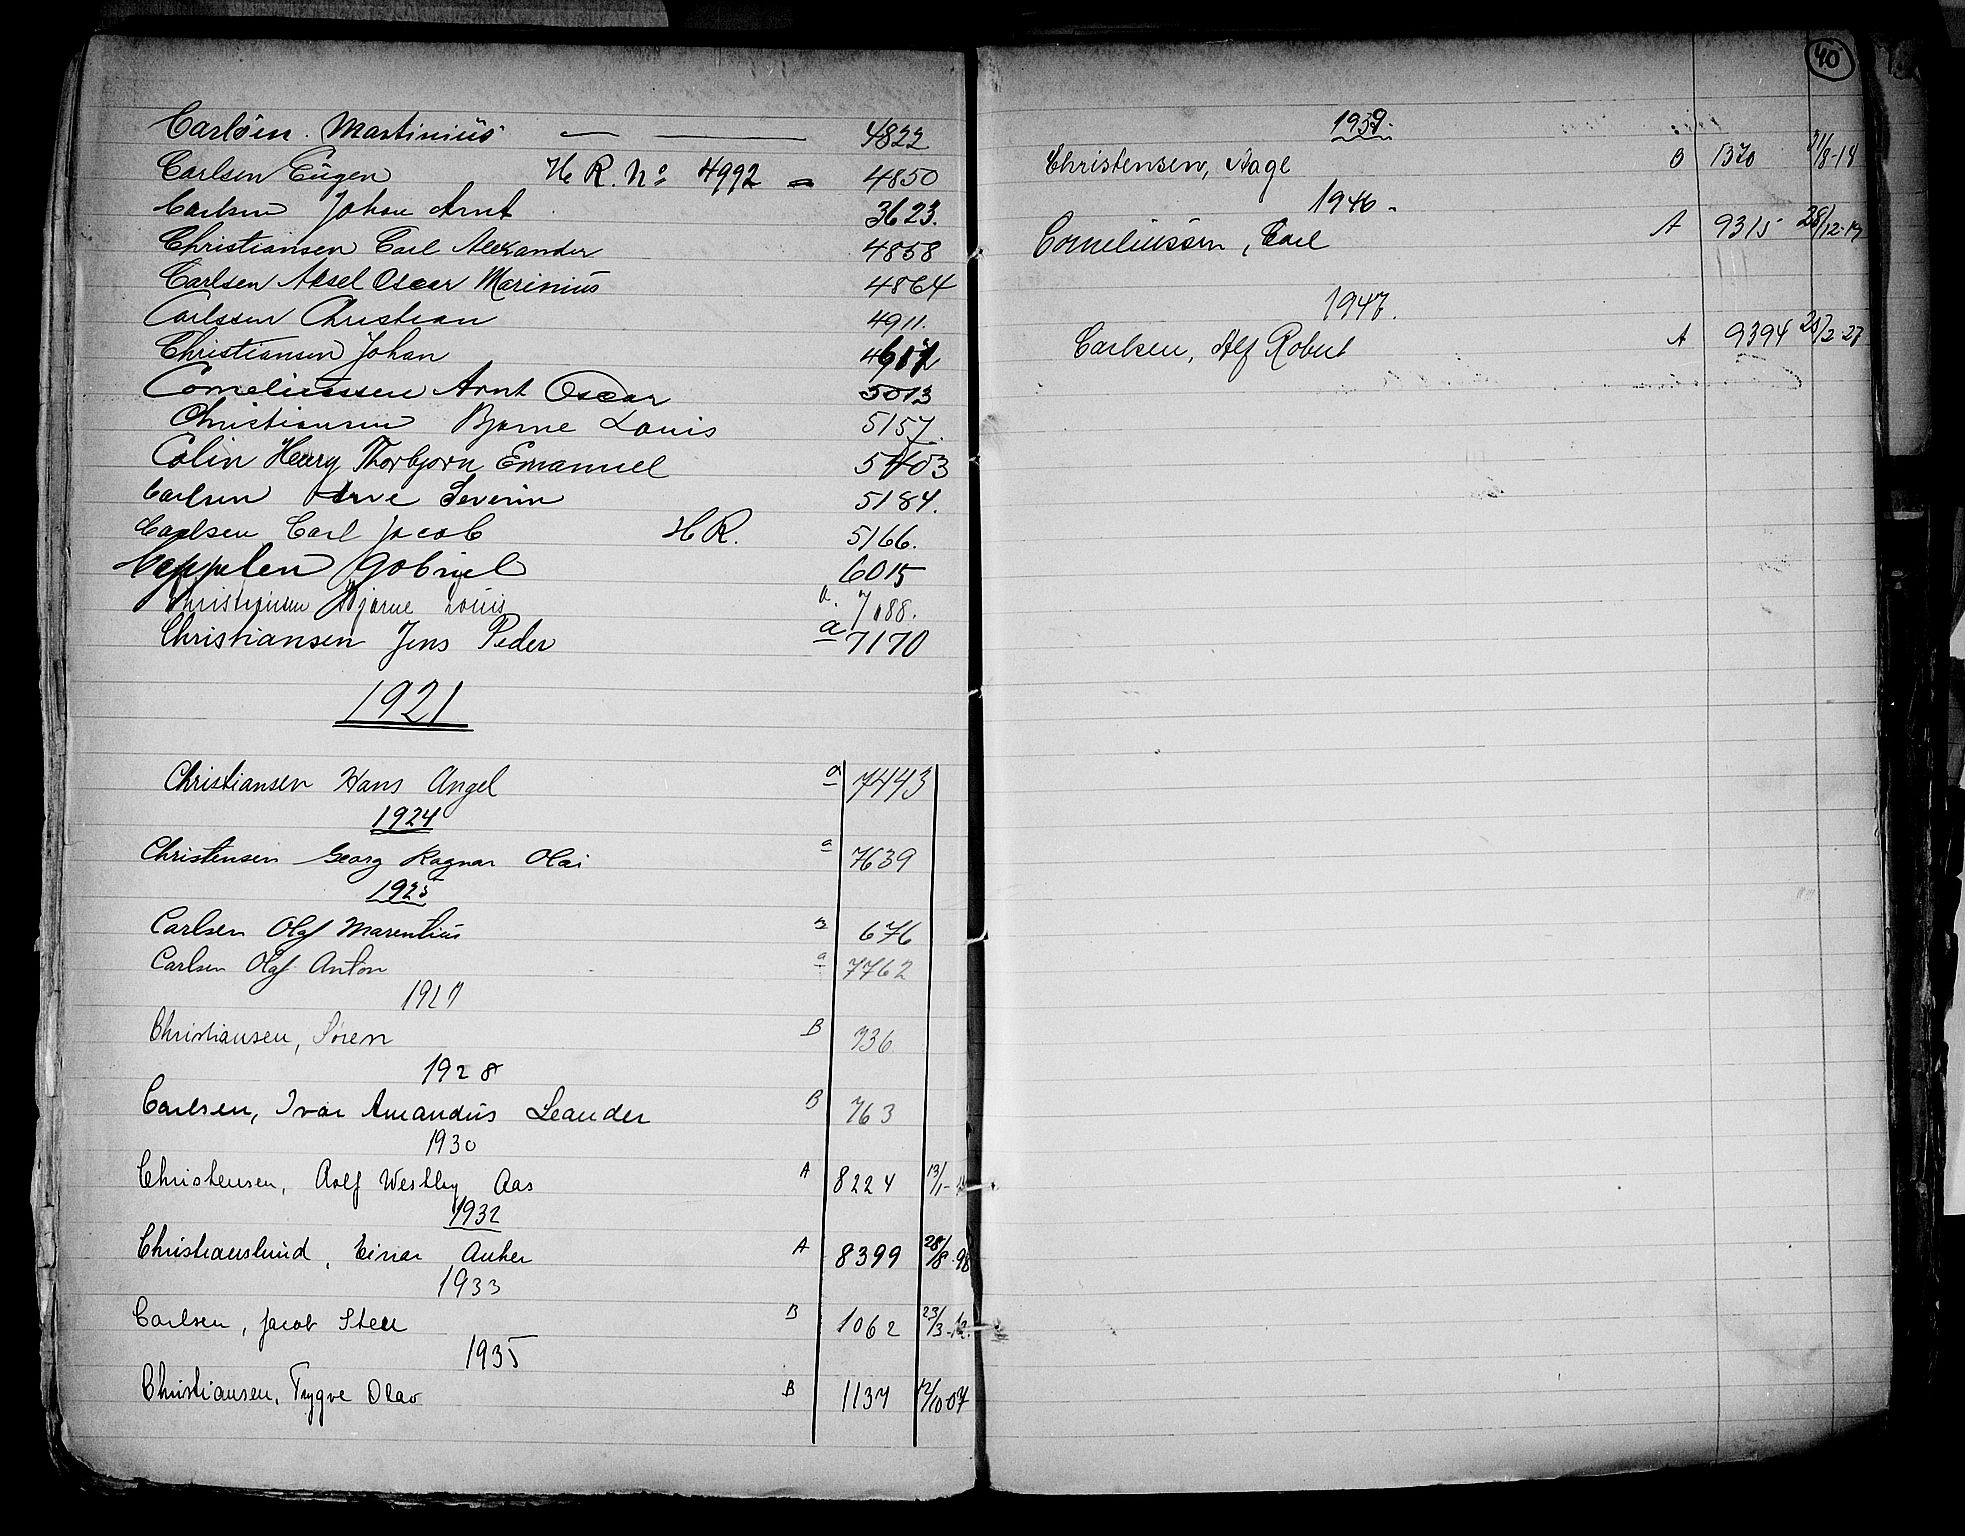 Carlsen Martinius — — 4822
Carlsen Eugen H. R. No 4992 = 4850
Carlsen Johan Arnt 3623.
Christiansen Carl Alexander 4858
Carlsen Aksel Oscar Marinius 4864
Carlssen Christian 4911.
Christiansen Johan
Corneliussen Arnt Oscar 5013
Christiansen Bjarne Louis 5157.
Colin Henry Thorbjørn Emanuel
Carlsen Arve Severin 5184.
Carlsen Carl Jacob H R. 5166.
Cappelen Gabriel 6015
Christiansen Bjarne Louis a. 7188.
Christiansen Jens Peder a 7170
1921
Christiansen Hans Angel a 7443
1924
Christensen Georg Ragnar Olai a 7639
1925
Carlsen Olaf Marentius B 676
Carlsen Olaf Anton a 7762
1927
Christiansen, Sören B 736
1928
Carlsen, Ivar Amandus Leander B 763
1930
Christensen, Rolf Westby Aas A 8224 13/1-
1932
Christianslund, Einar Anker A 8399 28/8-98
1933
Carlsen, Jacob Steen B 1062 23/3-12.
1935
Christiansen, Trygve Olav B 1137 12/10-07
40
1939.
Christensen, Aage B 1370 31/8-18
1946.
Corneliussen, Carl A 9315 28/12-19
1947.
Carlsen, Alf Robert A 9394 20/2-27